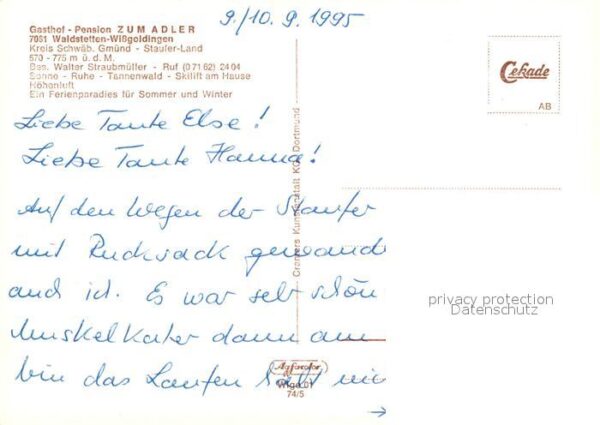 9./10. 9. 1995
Gasthof - Pension ZUM ADLER
7081 Waldstetten-Wißgoldingen
Kreis Schwäb. Gmünd - Staufer-Land
570 - 775 m ü. d. M.
Bes. Walter Straubmüller - Ruf (0 71 62) 24 04
Sonne - Ruhe - Tannenwald - Skilift am Hause
Höhenluft
Ein Ferienparadies für Sommer und Winter
Cekade
AB
Liebe Tante Else!
Liebe Tante Hanna!
Auf den Wegen der Staufer
mit Rucksack gewand
und ich. Es war sehr schön
Muskelkater dann am
bin das Laufen
→
Cramers Kunstanstalt KG, Dortmund
Agfacolor
Wlgo 01
74/5
privacy protection
Datenschutz